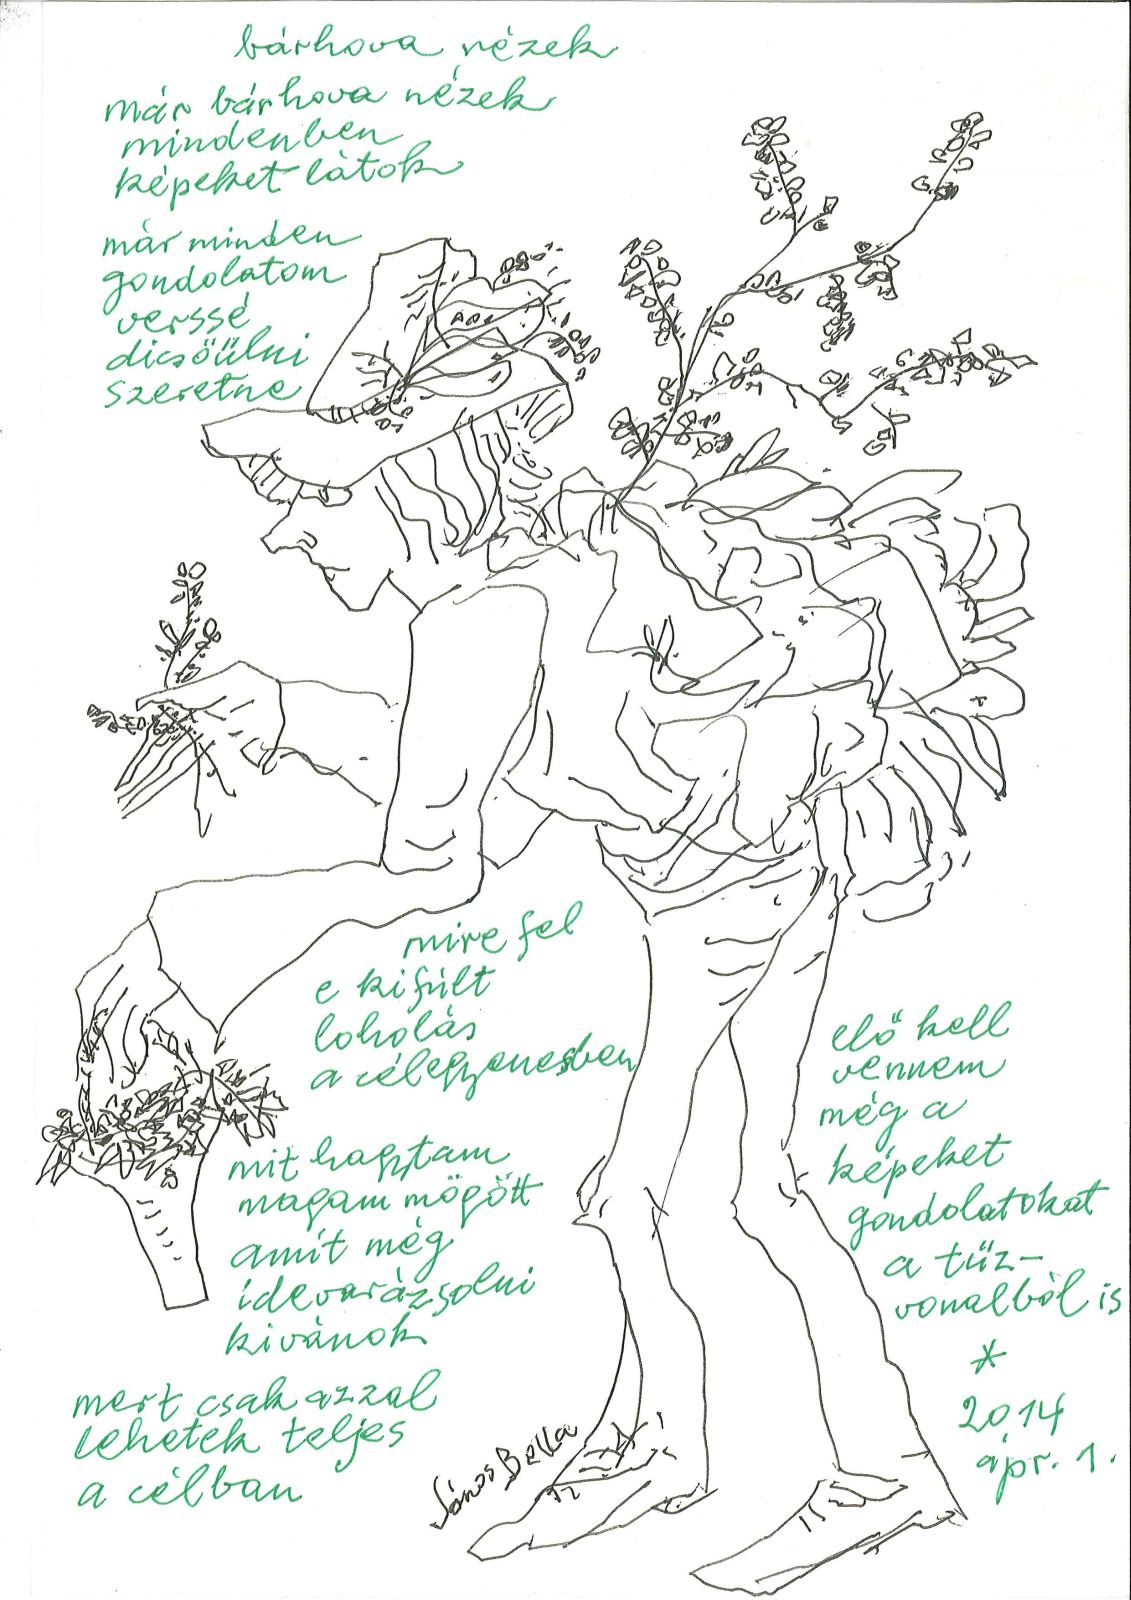 bárhova nézek
már bárhova nézek
mindenben
képeket látok
már minden
gondolatom
verssé
dicsőülni
szeretne
mire fel
e kifúlt
loholás
a célegyenesben
mit hagytam
magam mögött
amit még
idevarázsolni
kivánok
mert csak azzal
lehetek teljes
a célban
elő kell
vennem
még a
képeket
gondolatokat
a tűz-
vonalból is
*
2014
ápr. 1.
Sános Bella